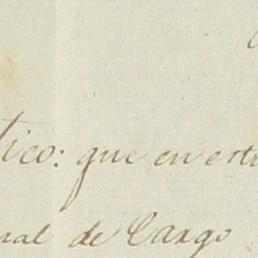 tico: que en est
nal de Cargo